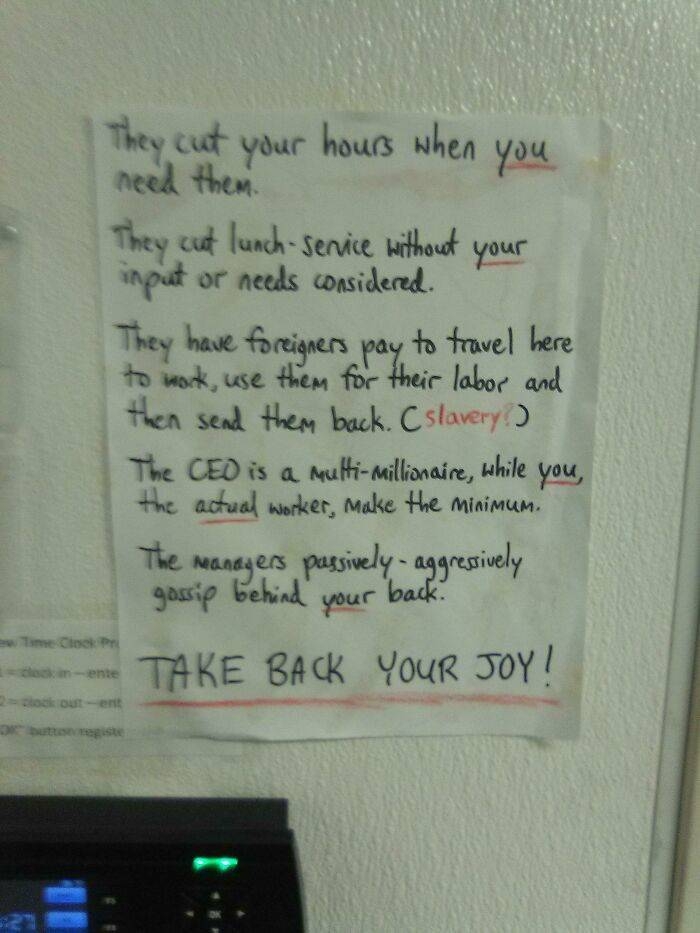 They cut your hours when you
need them.
They cut lunch-service without your
input or needs considered.
They have foreigners pay to travel here
to work, use them for their labor and
then send them back. (slavery?)
The CEO is a multi-millionaire, while you,
the actual worker, make the minimum.
The managers passively-aggressively
gossip behind your back.
TAKE BACK YOUR JOY!
ew Time Clock Pr
1 = clock in -- ente
2 = clock out -- ent
OK" button registe
OK
:27